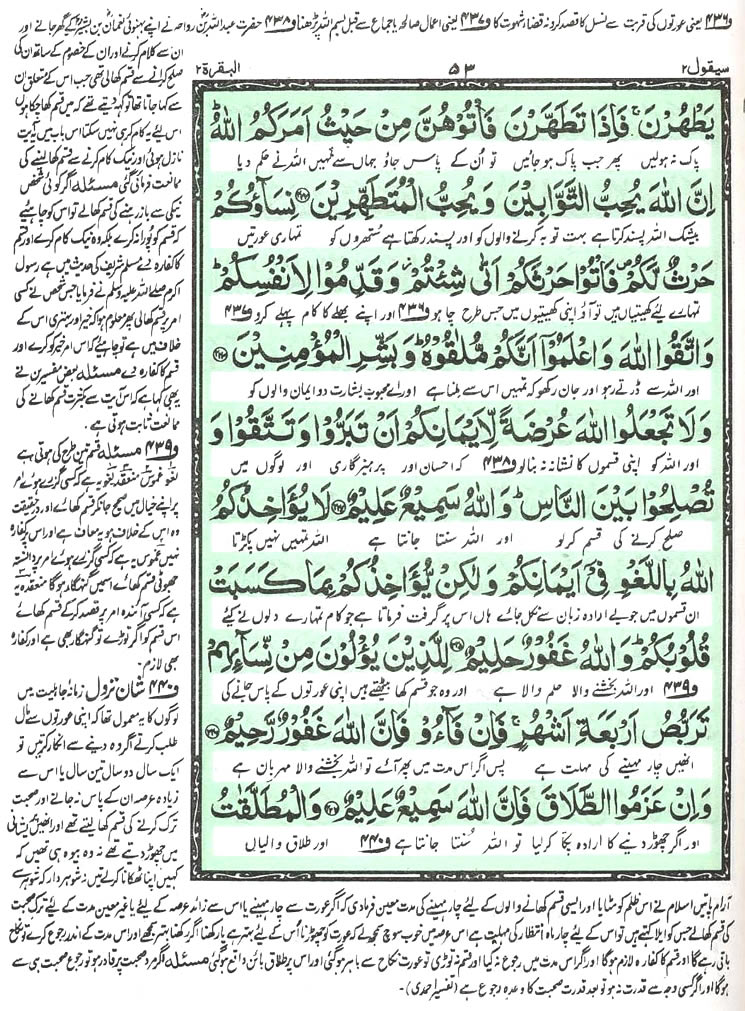 و۴۳۶ یعنی عورتوں کی قربت سے نسل کا قصد کرو نہ قضاء شہوت کا و۴۳۷ یعنی اعمال صالحہ یا جماع سے قبل بسم اللہ پڑھنا و۴۳۸ حضرت عبداللہ بن رواحہ نے اپنے بہنوئی نعمان بن بشیر کے گھر جانے اور
سیقول ۲
۵۳
البقرة ۲
يَطْهُرْنَ ۚ فَإِذَا تَطَهَّرْنَ فَأْتُوهُنَّ مِنْ حَيْثُ أَمَرَكُمُ اللَّهُ ؕ
پاک نہ ہولیں پھر جب پاک ہوجائیں تو اُن کے پاس جاؤ جہاں سے تمہیں اللہ نے حکم دیا
إِنَّ اللَّهَ يُحِبُّ التَّوَّابِينَ وَيُحِبُّ الْمُتَطَهِّرِينَ ﴿۲۲۲﴾ نِسَآؤُكُمْ
بیشک اللہ پسند کرتا ہے بہت توبہ کرنے والوں کو اور پسند رکھتا ہے ستھروں کو تمہاری عورتیں
حَرْثٌ لَّكُمْ ۪ فَأْتُوا حَرْثَكُمْ أَنّٰى شِئْتُمْ ۫ وَقَدِّمُوا لِأَنفُسِكُمْ ؕ
تمہارے لیے کھیتیاں ہیں تو آؤ اپنی کھیتیوں میں جس طرح چاہو و۴۳۶ اور اپنے بھلے کا کام پہلے کرو و۴۳۷
وَاتَّقُوا اللَّهَ وَاعْلَمُوٓا أَنَّكُم مُّلٰقُوهُ ؕ وَبَشِّرِ الْمُؤْمِنِينَ ﴿۲۲۳﴾
اور اللہ سے ڈرتے رہو اور جان رکھو کہ تمہیں اس سے ملنا ہے اور اے محبوب بشارت دو ایمان والوں کو
وَلَا تَجْعَلُوا اللَّهَ عُرْضَةً لِّأَيْمَانِكُمْ أَن تَبَرُّوا وَتَتَّقُوا وَ
اور اللہ کو اپنی قسموں کا نشانہ نہ بنالو و۴۳۸ کہ احسان اور پرہیزگاری اور لوگوں میں
تُصْلِحُوا بَيْنَ النَّاسِ ؕ وَاللَّهُ سَمِيعٌ عَلِيمٌ ﴿۲۲۴﴾ لَا يُؤَاخِذُكُمُ
صلح کرنے کی قسم کرلو اور اللہ سنتا جانتا ہے اللہ تمہیں نہیں پکڑتا
اللَّهُ بِاللَّغْوِ فِيٓ أَيْمَانِكُمْ وَلٰكِن يُؤَاخِذُكُم بِمَا كَسَبَتْ
ان قسموں میں جو بے ارادہ زبان سے نکل جائے ہاں اس پر گرفت فرماتا ہے جو کام تمہارے دلوں نے کیے
قُلُوبُكُمْ ؕ وَاللَّهُ غَفُورٌ حَلِيمٌ ﴿۲۲۵﴾ لِلَّذِينَ يُؤْلُونَ مِن نِّسَآئِهِمْ
و۴۳۹ اور اللہ بخشنے والا حلم والا ہے اور وہ جو قسم کھا بیٹھتے ہیں اپنی عورتوں کے پاس جانے کی
تَرَبُّصُ أَرْبَعَةِ أَشْهُرٍ ۚ فَإِن فَآءُو فَإِنَّ اللَّهَ غَفُورٌ رَّحِيمٌ ﴿۲۲۶﴾
انہیں چار مہینے کی مہلت ہے پس اگر اس مدت میں پھر آئے تو اللہ بخشنے والا مہربان ہے
وَإِنْ عَزَمُوا الطَّلَاقَ فَإِنَّ اللَّهَ سَمِيعٌ عَلِيمٌ ﴿۲۲۷﴾ وَالْمُطَلَّقٰتُ
اور اگر چھوڑ دینے کا ارادہ پکا کرلیا تو اللہ سُنتا جانتا ہے و۴۴۰ اور طلاق والیاں
ان سے کلام کرنے اور ان کے خصوم کے ساتھ ان کی
صلح کرانے سے قسم کھالی تھی جب اس کے متعلق ان
سے کہا جاتا تھا تو کہہ دیتے تھے کہ میں قسم کھا چکا ہوں
اس لیے یہ کام کر ہی نہیں سکتا اس باب میں یہ آیت
نازل ہوئی اور نیک کام کرنے سے قسم کھا لینے کی
ممانعت فرمائی گئی مسئلہ اگر کوئی شخص
نیکی سے باز رہنے کی قسم کھالے تو اس کو چاہیے
کہ قسم کو پورا نہ کرے بلکہ وہ نیک کام کرے اور قسم
کا کفارہ دے مسلم شریف کی حدیث میں ہے رسول
اکرم صلے اللہ علیہ وسلم نے فرمایا جس شخص نے کسی
امر پر قسم کھالی پھر معلوم ہوا کہ خیر اور بہتری اس کے
خلاف میں ہے تو چاہیے کہ اس امر خیر کو کرے اور
قسم کا کفارہ دے مسئلہ بعض مفسرین نے
یہ بھی کہا ہے کہ اس آیت سے بکثرت قسم کھانے کی
ممانعت ثابت ہوتی ہے۔
و۴۳۹ مسئلہ قسم تین طرح کی ہوتی ہے
لغو غموس منعقدہ لغو یہ ہے کہ کسی گزرے ہوئے امر
پر اپنے خیال میں صحیح جان کر قسم کھائے اور درحقیقت
وہ اس کے خلاف ہو یہ معاف ہے اور اس پر کفارہ
نہیں غموس یہ ہے کہ کسی گزرے ہوئے امر پر دانستہ
جھوٹی قسم کھائے اس میں گنہگار ہوگا منعقدہ یہ
ہے کہ کسی آئندہ امر پر قصد کرکے قسم کھائے
اس قسم کو اگر توڑے تو گنہگار بھی ہے اور کفارہ
بھی لازم۔
و۴۴۰ شان نزول زمانہ جاہلیت میں
لوگوں کا یہ معمول تھا کہ اپنی عورتوں سے مال
طلب کرتے اگر وہ دینے سے انکار کرتیں تو
ایک سال دو سال تین سال یا اس سے
زیادہ عرصہ ان کے پاس نہ جاتے اور صحبت
ترک کرنے کی قسم کھالیتے تھے اور انھیں پریشانی
میں چھوڑ دیتے تھے نہ وہ بیوہ ہی تھیں کہ
کہیں اپنا ٹھکانا کرلیتیں نہ شوہر دار کہ شوہر سے
آرام پاتیں اسلام نے اس ظلم کو مٹایا اور ایسی قسم کھانے والوں کے لئے چار مہینے کی مدت معین فرمادی کہ اگر عورت سے چار مہینے یا اس سے زائد عرصہ کے لئے یا غیر معین مدت کے لئے ترک صحبت
کی قسم کھالے جس کو ایلا کہتے ہیں تو اس کے لئے چار ماہ انتظار کی مہلت ہے اس عرصہ میں خوب سوچ سمجھ لے کہ عورت کو چھوڑنا اُس کے لئے بہتر ہے یا رکھنا اگر رکھنا بہتر سمجھے اور اس مدت کے اندر رجوع کرے تو نکاح
باقی رہے گا اور قسم کا کفارہ لازم ہوگا اور اگر اس مدت میں رجوع نہ کیا اور قسم نہ توڑی تو عورت نکاح سے باہر ہوگئی اور اس پر طلاق بائن واقع ہوگئی مسئلہ اگر مرد صحبت پر قادر ہو تو رجوع صحبت ہی سے
ہوگا اور اگر کسی وجہ سے قدرت نہ ہو تو بعد قدرت صحبت کا وعدہ رجوع ہے (تفسیر احمدی)۔